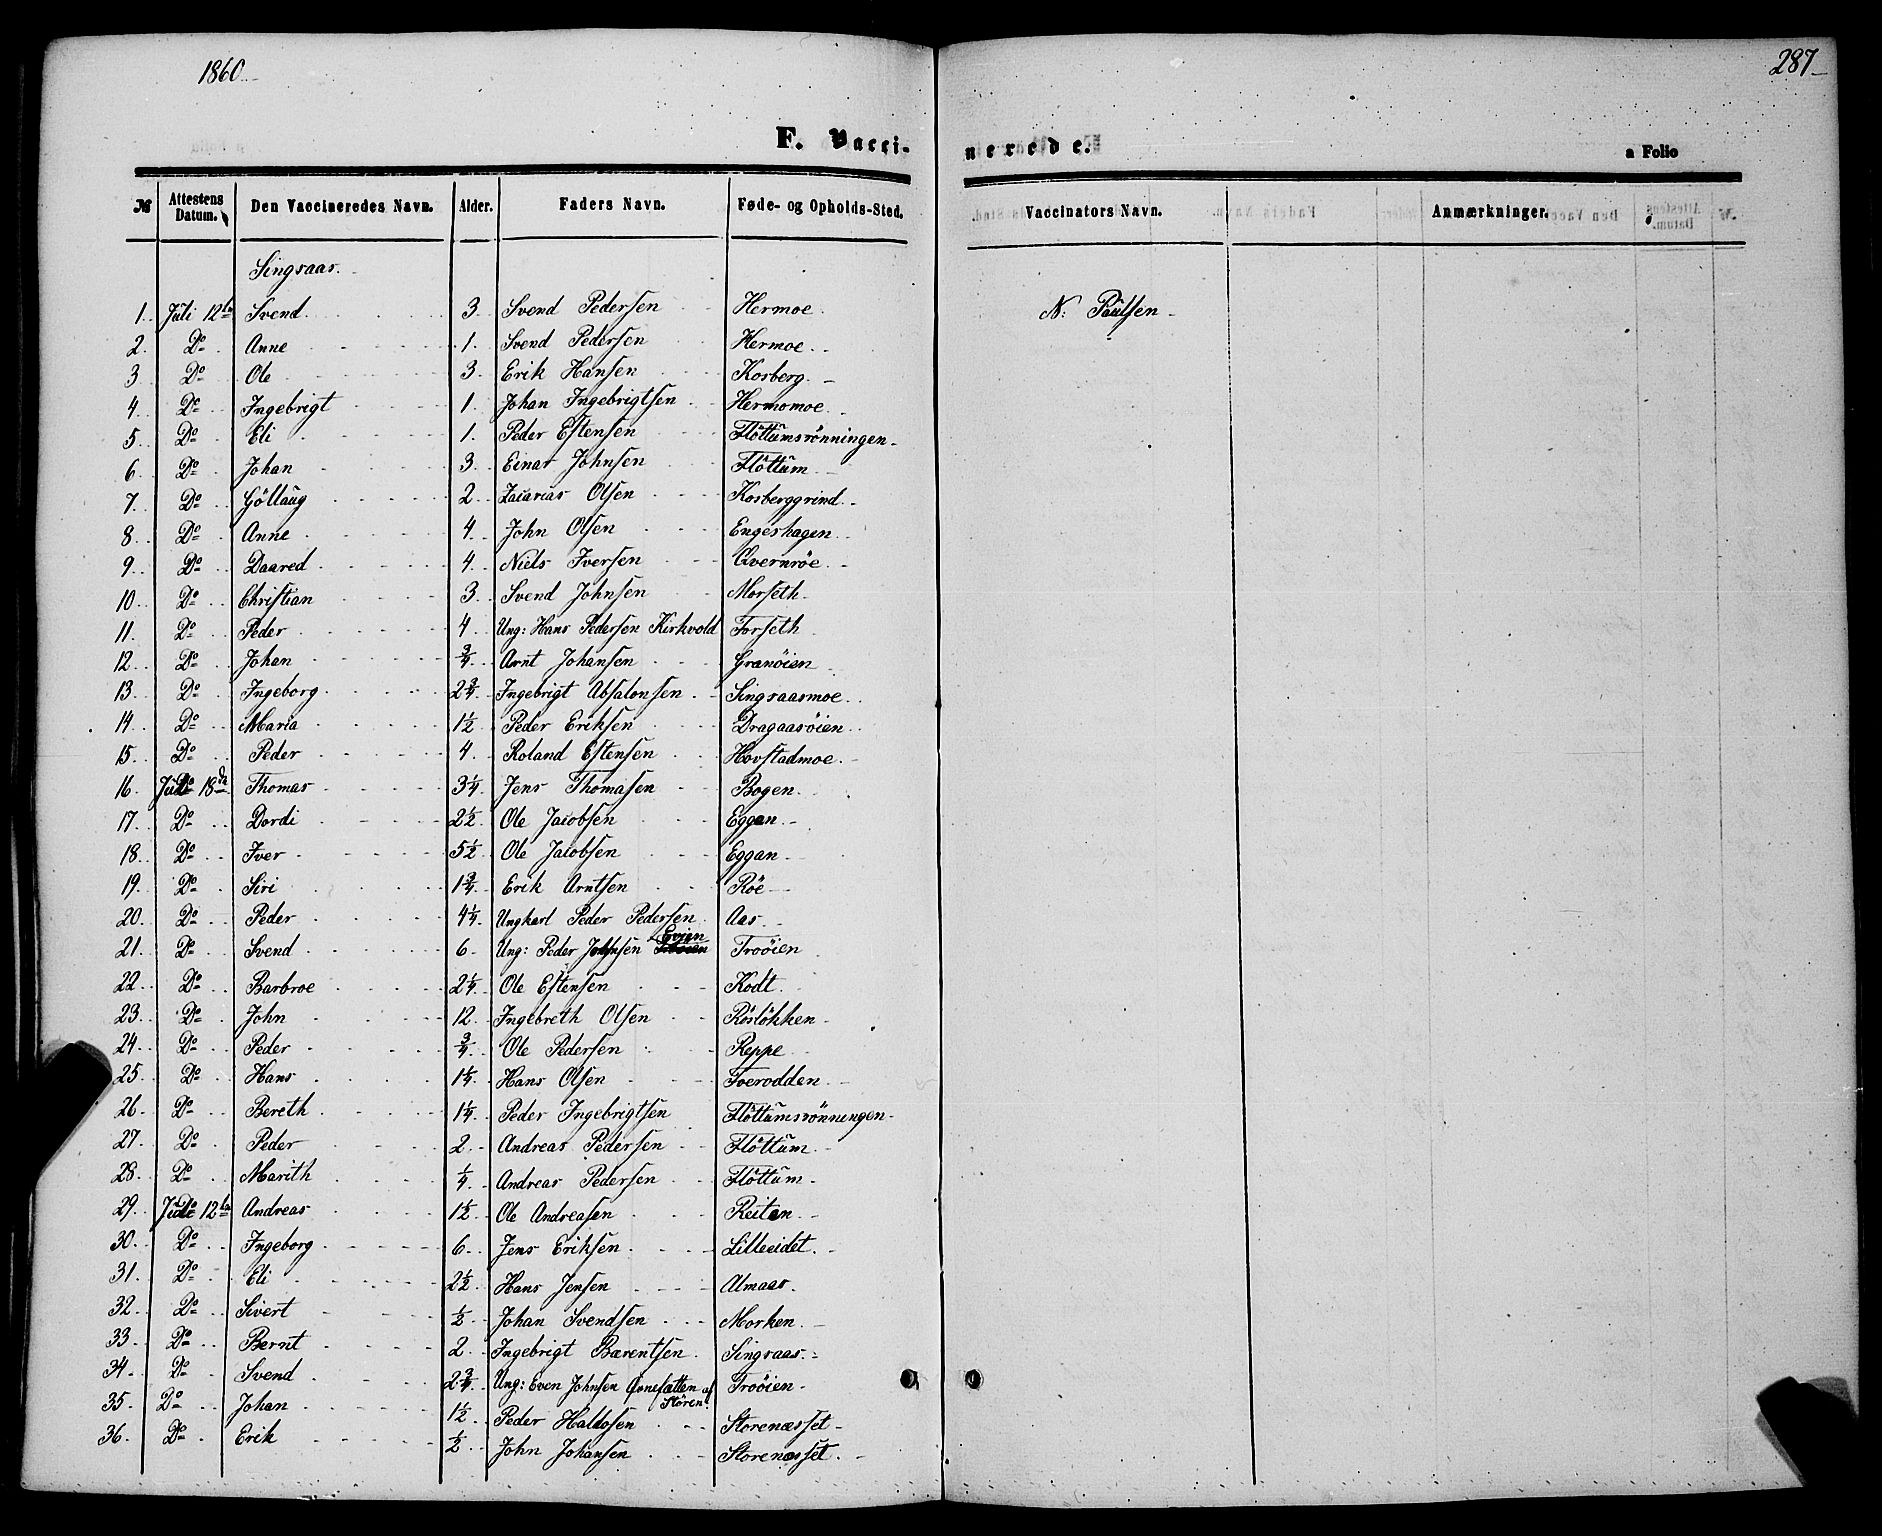 1860.
287
F. Vacci-
nerede.
a Folio
№ Attestens Datum. Den Vaccineredes Navn. Alder. Faders Navn. Føde- og Opholds-Sted. Vaccinators Navn. Anmærkninger.
Singsaas.
1. Juli 12te Svend 3. Svend Pedersen Hermoe. N: Paulsen
2. Do Anne 1. Svend Pedersen Hermoe.
3 Do Ole 3. Erik Hansen Kosberg.
4. Do Ingebrigt 1. Johan Ingebrigtsen Hermomoe.
5. Do Eli 1. Peder Estensen Flöttumsrönningen.
6. Do Johan 3. Einar Johnsen Flöttum.
7. Do Göllaug 2. Zacarias Olsen Kosberggrind.
8. Do Anne 4. John Olsen Engeshagen.
9. Do Daared 4. Niels Iversen Qvernröe.
10. Do Christian 3. Svend Johnsen Morseth.
11. Do Peder 4. Ung: Hans Pedersen Kirkvold Forseth.
12. Do Johan 3/4. Arnt Johansen Granöien
13. Do Ingeborg 2 3/4. Ingebrigt Absalonsen Singsaasmoe.
14. Do Maria 1 1/2 Peder Eriksen Dragaasöien.
15. Do Peder 4. Roland Estensen Hovstadmoe.
16. Juli 18de Thomas 3 1/4. Jens Thomasen Bogen.
17. Do Dordi 2 1/2. Ole Jacobsen Eggen.
18. Do Iver 5 1/2. Ole Jacobsen Eggan.
19. Do Siri 1 3/4. Erik Arntsen Röe
20. Do Peder 4 1/4. Ungkarl Peder Pedersen Aas.
21. Do Svend 6. Ung: Peder Johnsen Evien Troöien
22. Do Barbroe 2 1/4. Ole Estensen Kodt.
23. Do John 12. Ingebreth Olsen Röslökken
24. Do Peder 3/4. Ole Pedersen Reppe
25. Do Hans 1 1/4. Hans Olsen Tverodden.
26. Do Bereth 1 1/4. Peder Ingebrigtsen Flöttumsrönningen.
27. Do Peder 2. Andreas Pedersen Flöttum.
28. Do Marith 1/4. Andreas Pedersen Flöttum.
29. Juli 12te Andreas 1 1/2. Ole Andreasen Reiten.
30. Do Ingeborg 6. Jens Eriksen Lilleeidet.
31. Do Eli 2 1/2. Hans Jensen Almaas.
32. Do Sivert 1/2. Johan Svendsen Morken.
33. Do Bernt 2. Ingebrigt Bærentsen Singsaas.
34. Do Svend 2 3/4. Ung: Even Johnsen af Stören. Troöien.
35. Do Johan 1 1/2 Peder Haldosen Storenæsset.
36. Do Erik 1/2. John Johansen Storenæsset.